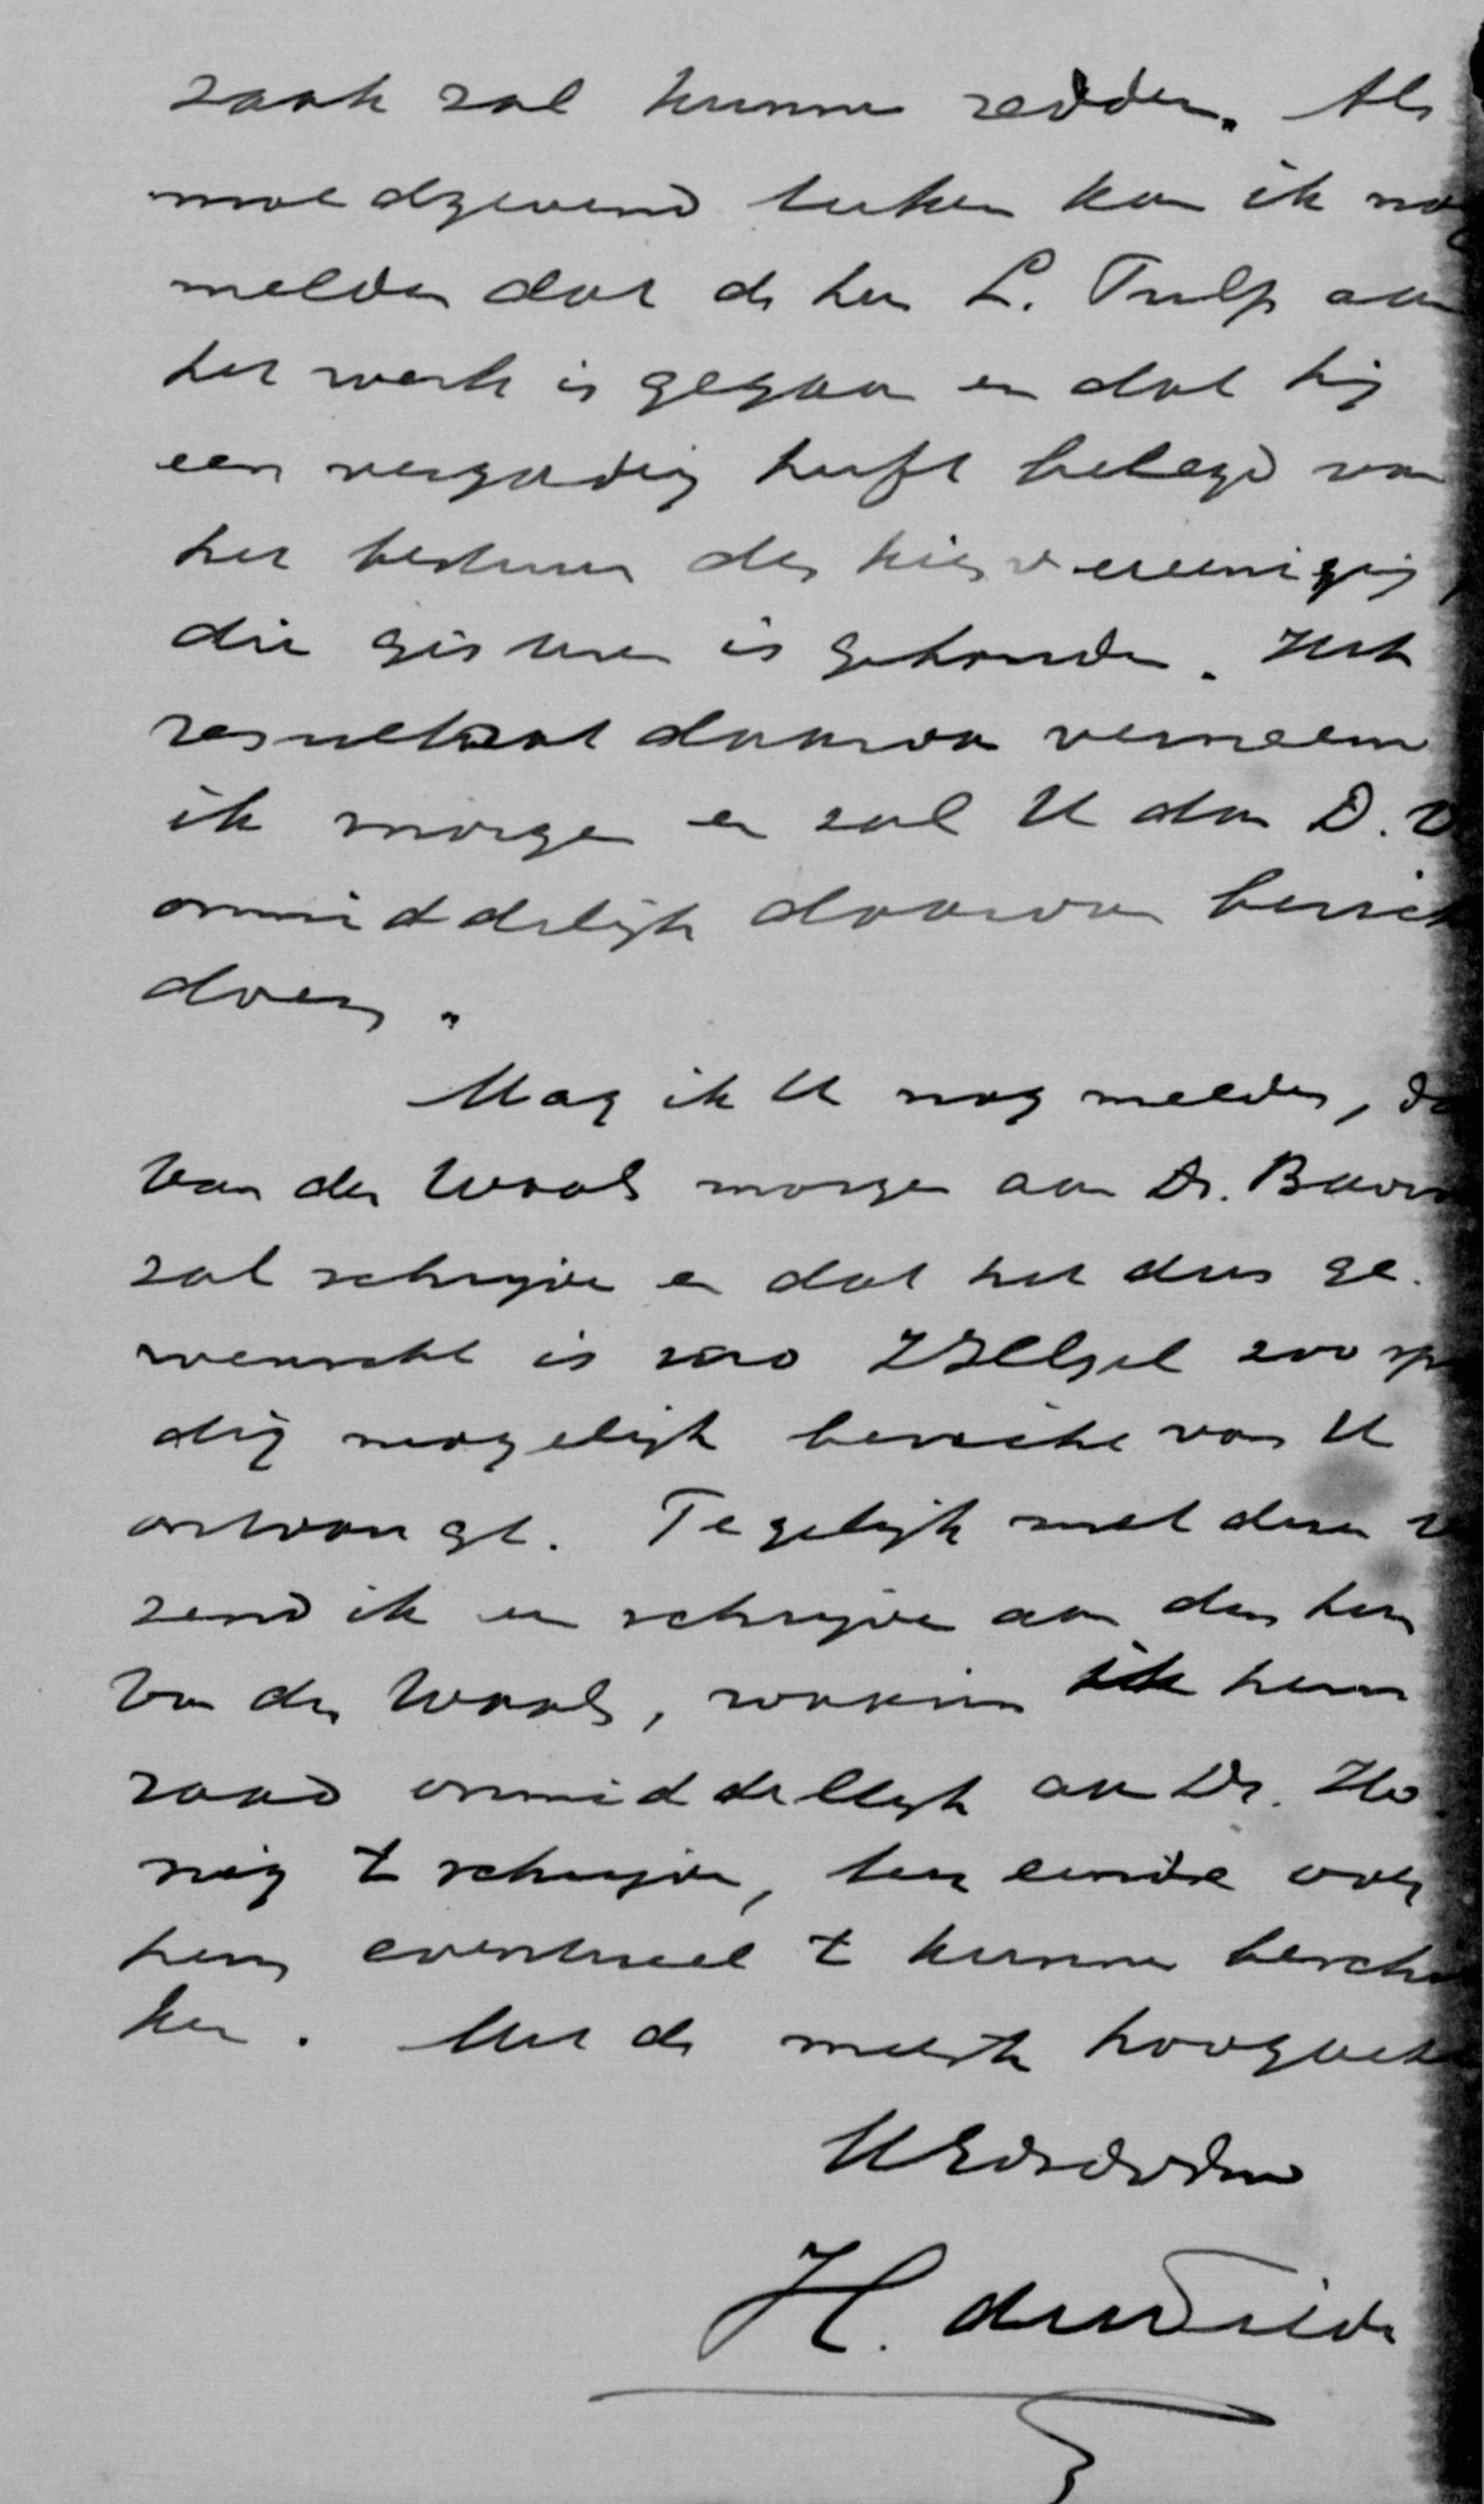 zaak zal kunnen redden. Als
moedgevend teeken kan ik nog
melden dat de heer L. Tulp aan
het werk is gegaan en dat hij
een vergadering heeft belegd van
het bestuur der kiesvereeniging,
die gisteren is gehouden. Het
resultaat daarvan verneem
ik morgen en zal U dan D.V.
onmiddelijk daarvan bericht
doen.
Mag ik U nog melden, dat
Van der Waals morgen aan Dr. Bavinck
zal schrijven en dat het dus ge-
wenscht is zoo ZHGel zoo spoe
dig mogelijk bericht van U
ontvangt. Tegelijk met dezen
zend ik een schrijven aan den heer
Van der Waals, waarin ik hem
raad onmiddellijk aan Dr. Ho
nig te schrijven, ten einde over
hem eventueel te kunnen beschik
ken. Met de meeste hoogacht
UEdsdvdnr
H. de Wilde